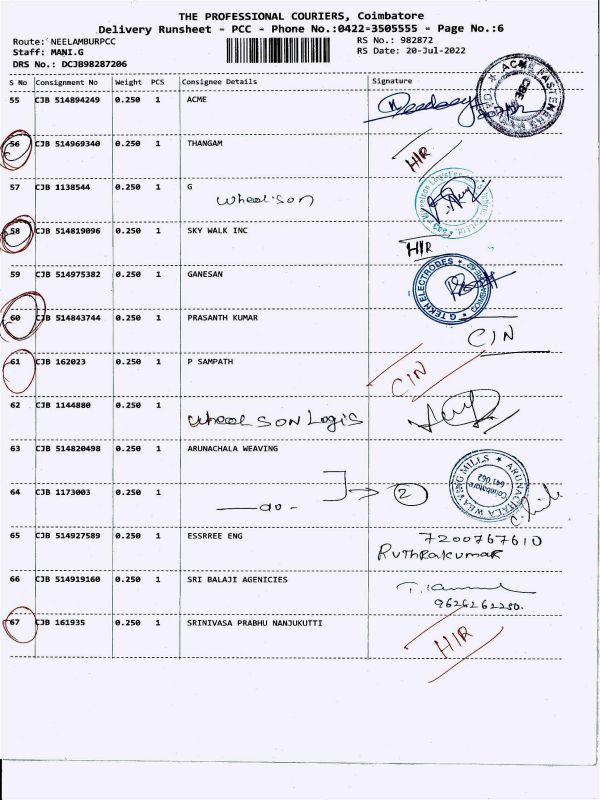 THE PROFESSIONAL COURIERS, Coimbatore
Delivery Runsheet - PCC - Phone No.:0422-3505555 - Page No.:6
Route: NEELAMBURPCC RS No.: 982872
Staff: MANI.G RS Date: 20-Jul-2022
DRS No.: DCJB98287206
S No Consignment No Weight PCS Consignee Details Signature
55 CJB 514894249 0.250 1 ACME
ACME FASTENERS
56 CJB 514969340 0.250 1 THANGAM H/R
57 CJB 1138544 0.250 1 G
wheel.son
58 CJB 514819096 0.250 1 SKY WALK INC H/R
59 CJB 514975382 0.250 1 GANESAN
G TEKH ELECTRODES
60 CJB 514843744 0.250 1 PRASANTH KUMAR
C/N
61 CJB 162023 0.250 1 P SAMPATH C/N
62 CJB 1144880 0.250 1
wheel SON Logis
63 CJB 514820498 0.250 1 ARUNACHALA WEAVING
ARUNACHALA WEAVING MILLS
Coimbatore
641 062
64 CJB 1173003 0.250 1 2
—do-
65 CJB 514927589 0.250 1 ESSRREE ENG 7200767610
RUTHRAKUMAR
66 CJB 514919160 0.250 1 SRI BALAJI AGENICIES
67 CJB 161935 0.250 1 SRINIVASA PRABHU NANJUKUTTI H/R